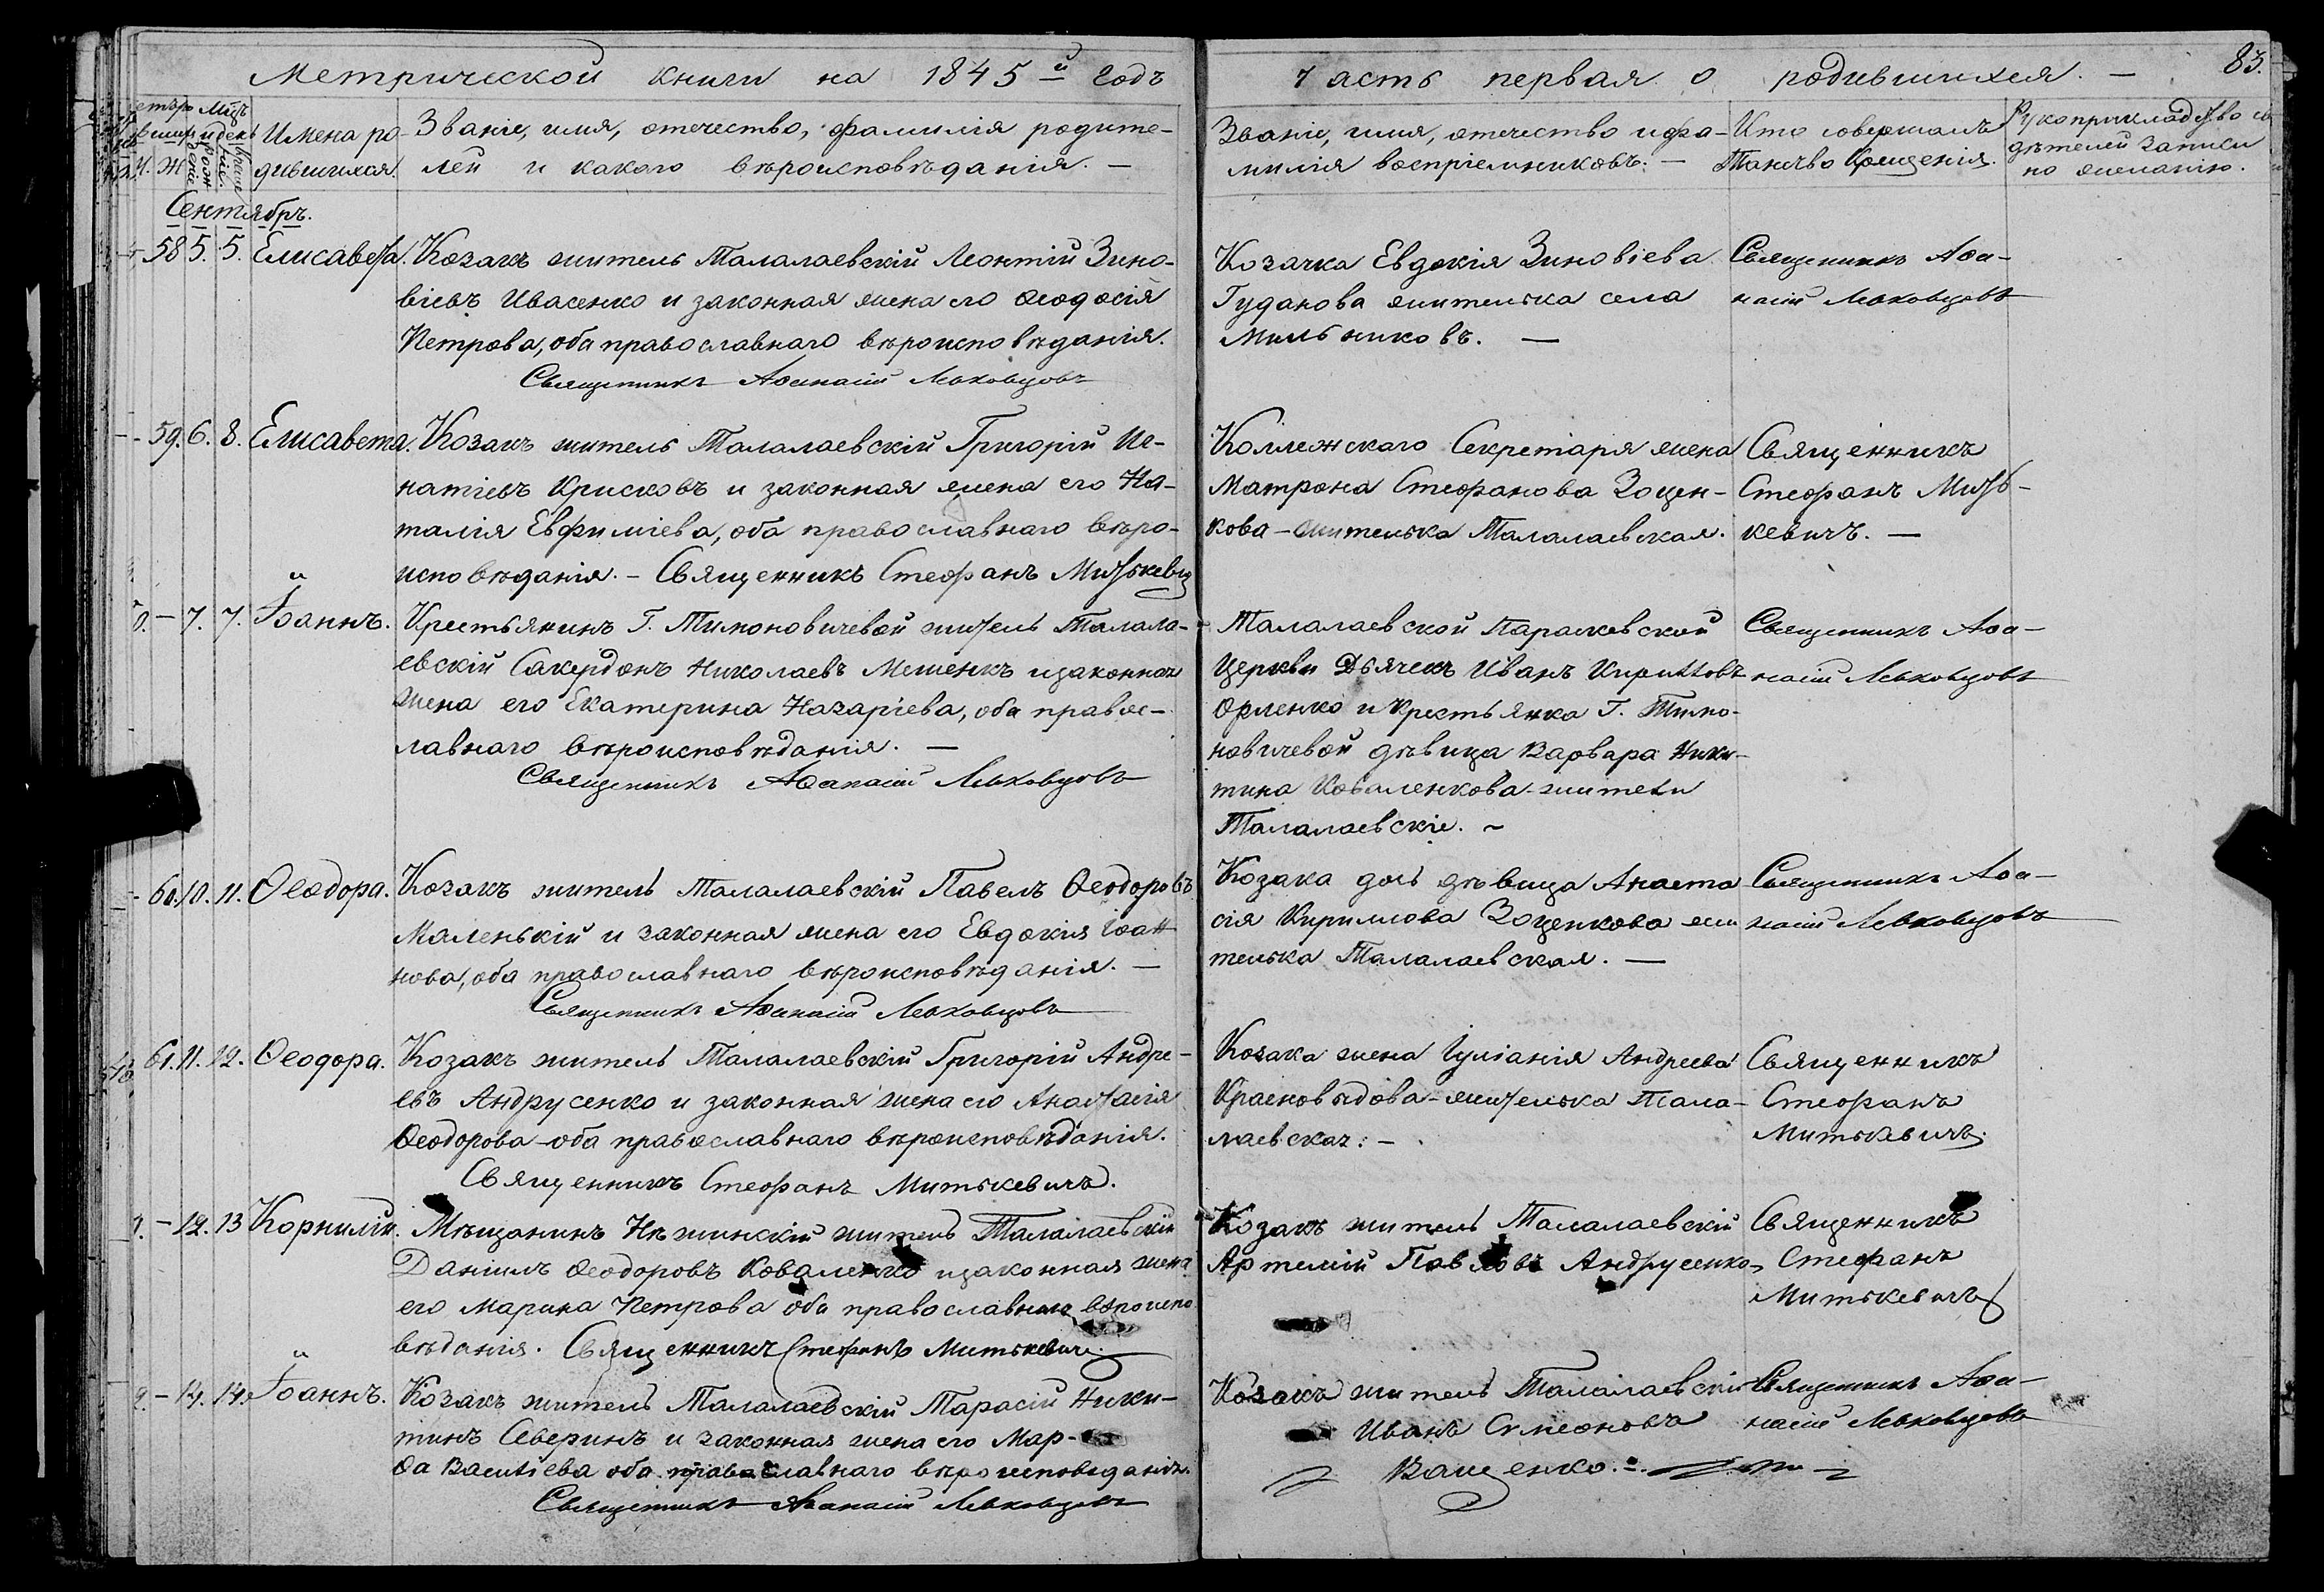 Метрической книги на 1845й годъ
Часть первая о родившихся. — 83.
Имена ро-
дившихся.
Званіе, имя, отечество, фамилія родите-
лей и какого вѣроисповѣданія. —
Званіе, имя, отечество и фа-
милія воспріемниковъ. —
Кто совершалъ
Таинство Крещенія.
Рукоприкладство сви
дѣтелей записи
по желанію.
Сентябрь.
- 58 5. 5. Елисавета. Козакъ житель Талалаевскій Леонтій Зино-
віевъ Ивасенко и законная жена его Ѳеодосія
Петрова, оба православнаго вѣроисповѣданія.
Священникъ Аѳанасій Левковцовъ
Козачка Евдокія Зиновіева
Гуданова жителька села
Мильниковъ. —
Священникъ Аѳа-
насій Левковцовъ
- 59. 6. 8. Елисавета. Козакъ житель Талалаевскій Григорій Иг-
натіевъ Крисковъ и законная жена его На-
талія Евфиміева, оба православнаго вѣро-
исповѣданія. - Священникъ Стефанъ Митькевич
Коллежскаго Секретаря жена
Матрона Стефанова Зоцен-
кова - жителька Талалаевская.
Священникъ
Стефанъ Мить-
кевичъ. —
— 7. 7. Іоаннъ. Крестьянинъ Г. Тимоновичевой житель Талала-
евскій Сакердонъ Николаевъ Мешенкъ изаконная
жена его Екатерина Назаріева, оба правос-
лавнаго вѣроисповѣданія. —
Священникъ Аѳанасій Левковцовъ
Талалаевской Параскевской
Церкви Дьячекъ Иванъ Кирилловъ
Орленко и крестьянка Г. Тимо-
новичевой дѣвица Варвара Ники-
тина Коваленкова - жители
Талалаевскіе. ~
Священникъ Аѳа-
насій Левковцовъ
- 60. 10. 11. Ѳеодора. Козакъ житель Талалаевскій Павелъ Ѳеодоровъ
Маленькій и законная жена его Евдокія Іоан-
нова, оба православнаго вѣроисповѣданія. —
Священникъ Аѳанасій Левковцовъ
Козака дочь дѣвица Анаста
сія Кириллова Зоценкова жи
телька Талалаевская. —
Священникъ Аѳа-
насій Левковцовъ
61. 11. 12. Ѳеодора. Козакъ житель Талалаевскій Григорій Андре-
евъ Андрусенко и законная жена его Анастасія
Ѳеодорова - оба православнаго вѣроисповѣданія.
Священникъ Стефанъ Митькевичъ.
Козака жена Іуліанія Андреева
Красновидова - жителька Тала-
лаевская. -
Священникъ
Стефанъ
Митькевичъ.
— 12. 13 Корнилій. Мѣщанинъ Нѣжинскій житель Талалаевскій
Даніилъ Ѳеодоровъ Коваленко изаконная жена
его Марина Петрова оба православнаго вѣроиспо
вѣданія. Священникъ Стефанъ Митькевичъ.
Козакъ житель Талалаевскій
Артемій Павловъ Андрусенко
Священникъ
Стефанъ
Митькевичъ
— 14. 14. Іоаннъ. Козакъ житель Талалаевскій Тарасій Ники-
тинъ Северинъ и законная жена его Мар-
ѳа Василіева оба православнаго вѣроисповѣданія.
Священникъ Аѳанасій Левковцовъ
Козакъ житель Талалаевскій
Иванъ Симеоновъ
Ващенко.
Священникъ Аѳа-
насій Левковцовъ